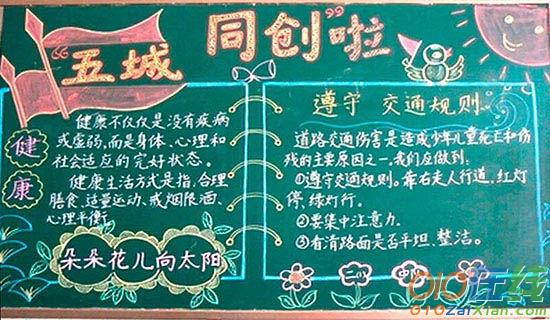 “五城同创”啦
健康
健康不仅仅是没有疾病
或虚弱,而是身体、心理和
社会适应的完好状态。
健康生活方式是指,合理
膳食、适量运动、戒烟限酒、
心理平衡。
朵朵花儿向太阳
遵守 交通规则。
道路交通伤害是造成少年儿童死亡和伤
残的主要原因之一,我们应做到:
①遵守交通规则。靠右走人行道,红灯
停,绿灯行。
②要集中注意力。
③看清路面是否平坦、整洁。
010在线
010zaixian.com